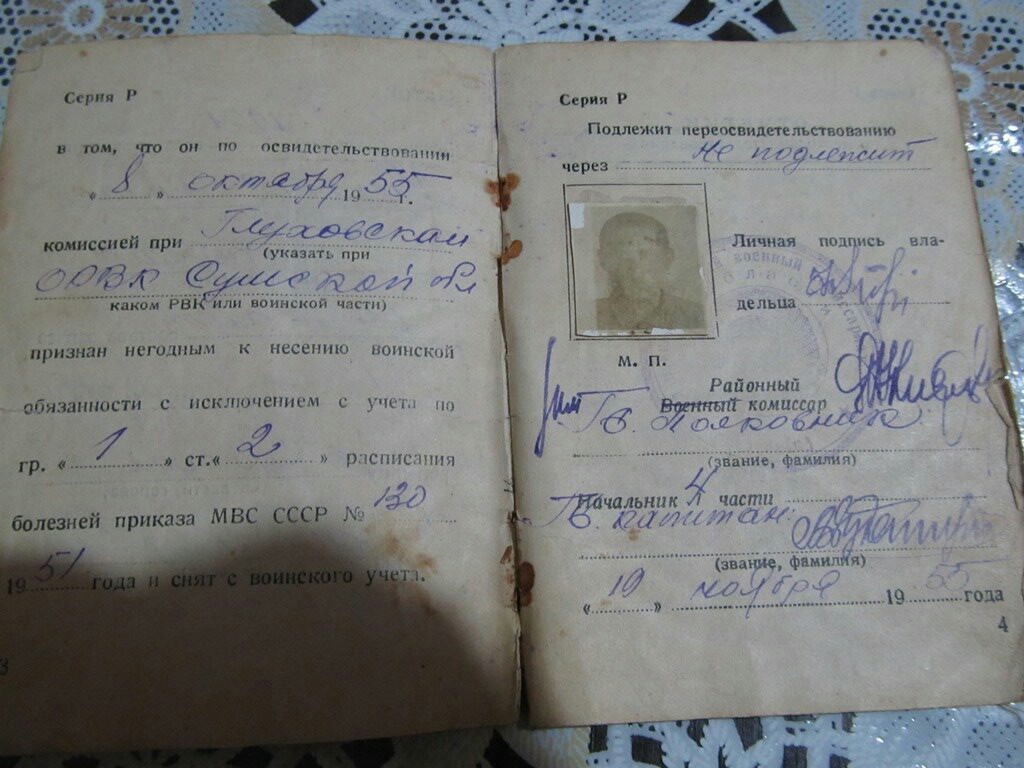 Серия Р
в том, что он по освидетельствовании
« 8 » октября 1955 г.
комиссией при Глуховском
(указать при
ОРВК Сумской обл
каком РВК или воинской части)
признан негодным к несению воинской
обязанности с исключением с учета по
гр. « 1 » ст. « 2 » расписания
болезней приказа МВС СССР № 130
1951 года и снят с воинского учета.
3
Серия Р
Подлежит переосвидетельствованию
через не подлежит
Личная подпись вла-
дельца
М. П.
Районный
Военный комиссар
Гв. Полковник
(звание, фамилия)
Начальник 4 части
Гв. капитан
(звание, фамилия)
« 19 » ноября 1955 года
4